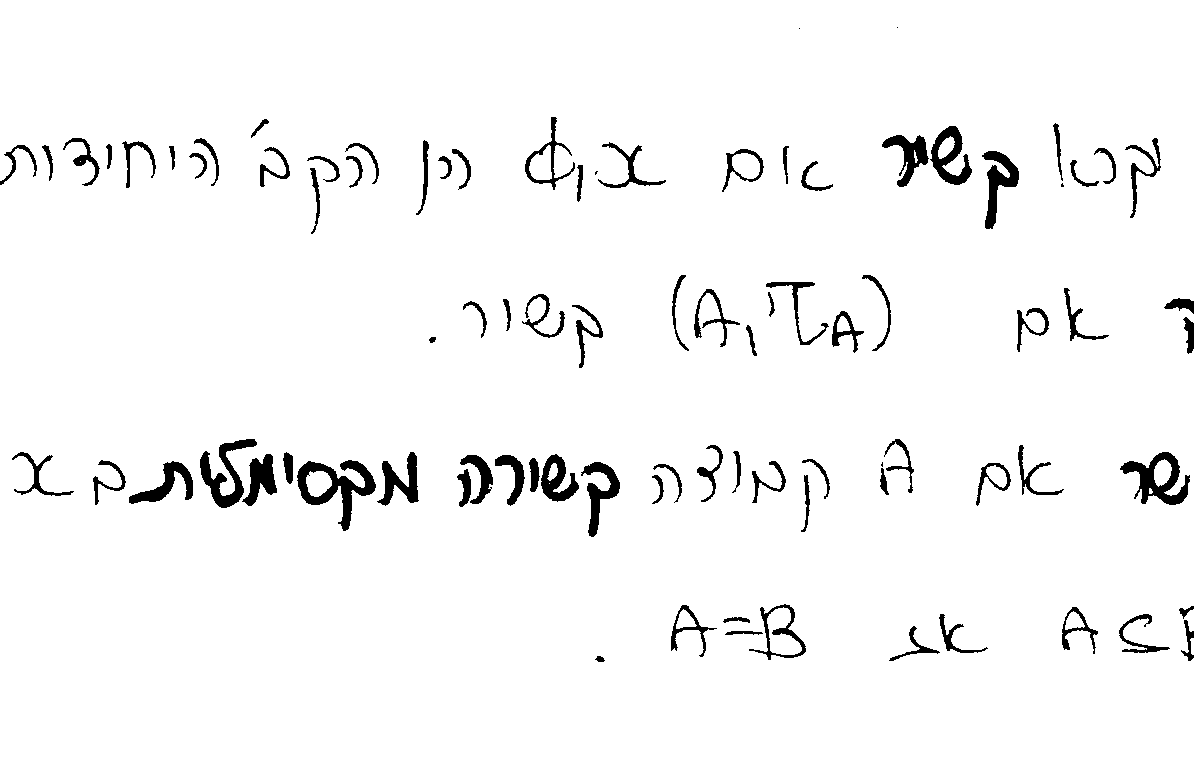 יקרא קשיר אם X,ϕ הן הקב' היחידות
אם (A,τ_A) קשור.
אם A קבוצה קשורה מקסימלית ב X
A⊆ אז A=B.